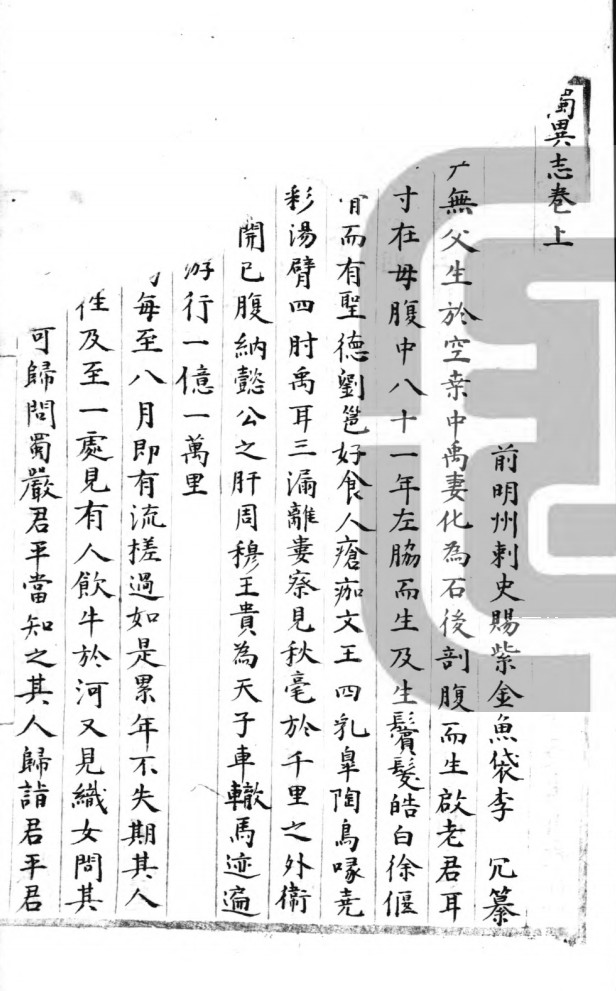 蜀異志卷上
前明州刺史賜紫金魚袋李 冗纂
無父生於空桒中禹妻化為石後剖腹而生啟老君耳
寸在母腹中八十一年左脇而生及生鬢髮皓白徐偃
而有聖德劉邕好食人瘡痂文王四乳皐陶鳥喙堯
彩湯臂四肘禹耳三漏離婁察見秋毫於千里之外衛
開已腹納懿公之肝周穆王貴為天子車轍馬迹遍
游行一億一萬里
每至八月即有流槎過如是累年不失期其人
及至一處見有人飲牛於河又見織女問其
可歸問蜀嚴君平當知之其人歸詣君平君